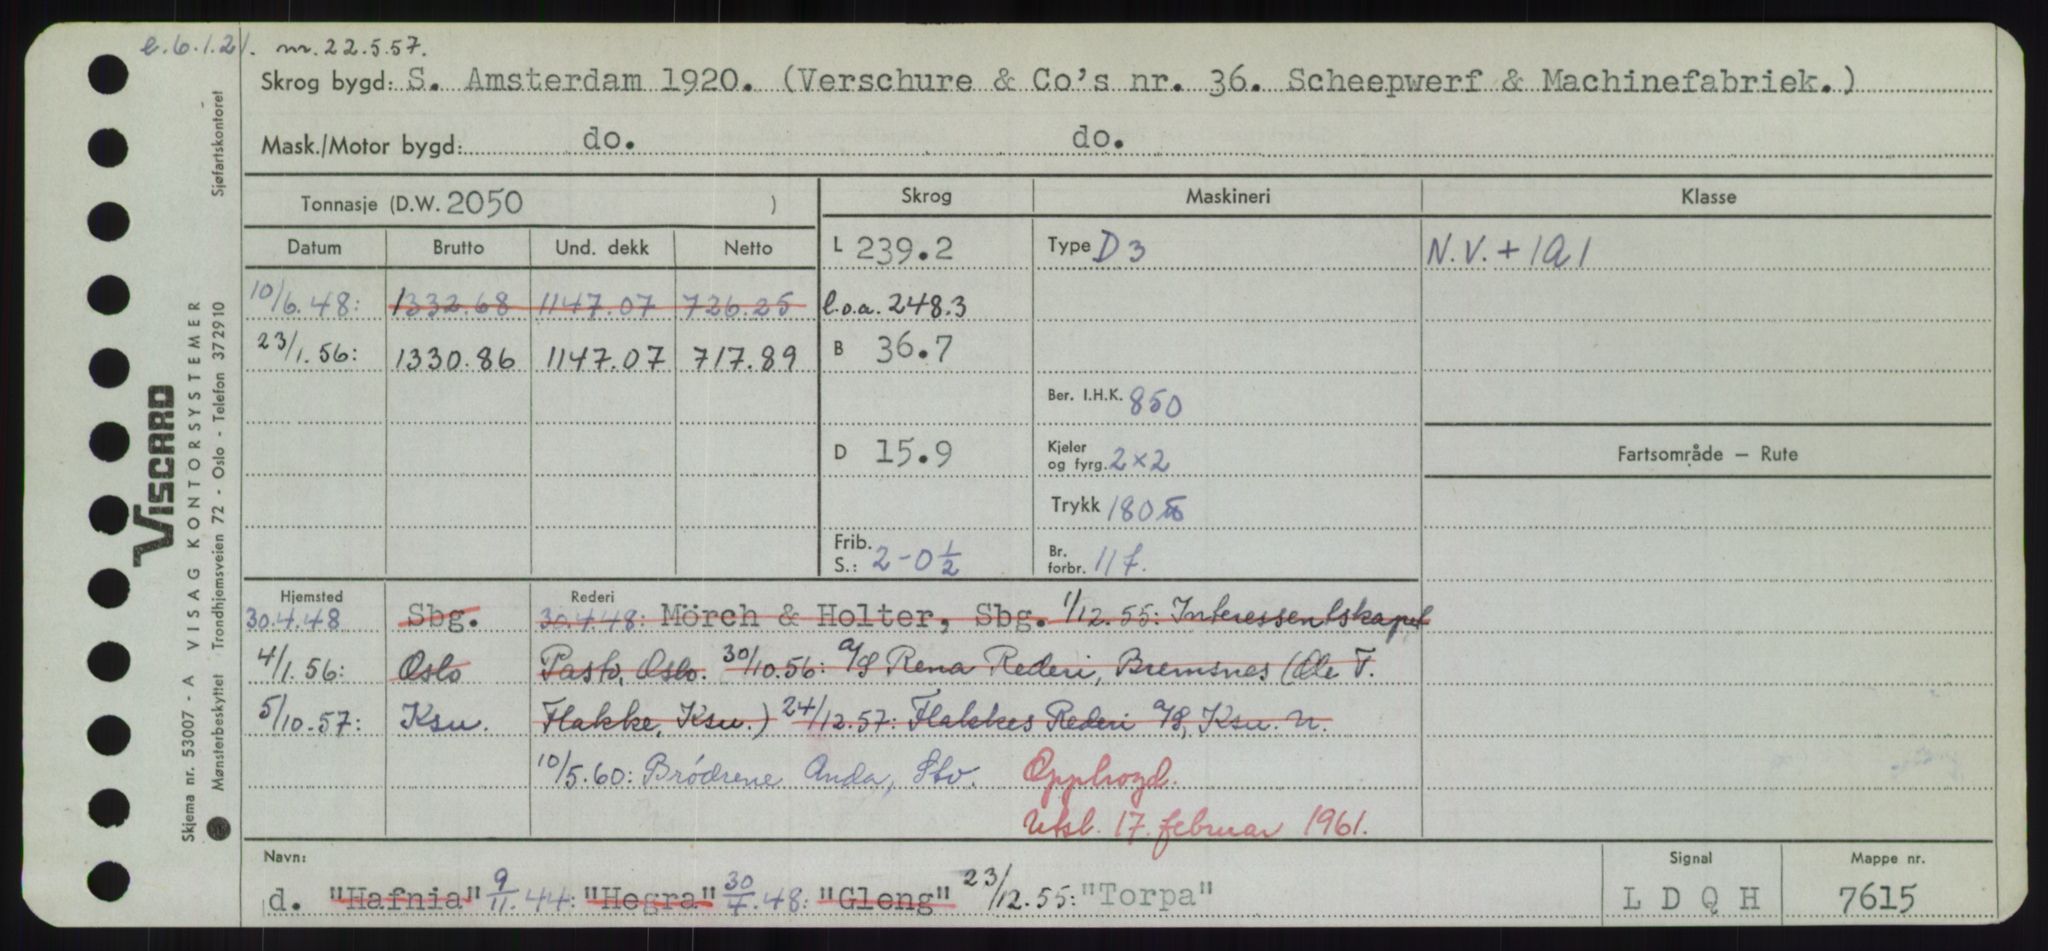 e.6.1.21. nr. 22.5.57.
Skrog bygd: S. Amsterdam 1920. (Verschure & Co's nr. 36. Scheepwerf & Machinefabriek.)
Mask./Motor bygd: do. do.
Tonnasje (D.W. 2050 )
Skrog Maskineri Klasse
Datum Brutto Und. dekk Netto
L 239.2 Type D 3 N.V. + 1A1
10/6.48: 1332.68 1147.07 726.25 l.o.a. 248.3
23/1.56: 1330.86 1147.07 717.89 B 36.7
Ber. I.H.K. 850
D 15.9 Kjeler og fyrg. 2×2 Fartsområde — Rute
Trykk 180
Frib. S.: 2-0½ Br. forbr. 11 t.
Hjemsted Rederi
30.4.48 Sbg. 30.4.48: Mörch & Holter, Sbg. 1/12.55: Interessentskapet
4/1.56: Oslo Pasto, Oslo. 30/10.56: A/S Rena Rederi, Bremsnes (Ole T.
5/10.57: Ksu. Flakke, Ksu.) 24/12.57: Flakkes Rederi A/S, Ksu. N.
10/5.60: Brödrene Anda, Stv. Opphogd.
Utsl. 17. februar 1961.
Navn: Signal Mappe nr.
d. "Hafnia" 9/11.44: "Hegra" 30/7.48: "Gleng" 23/12.55: "Torpa" L D Q H 7615
VISCARD
Skjema nr. 53007 - A VISAG KONTORSYSTEMER Sjøfartskontoret
Mønsterbeskyttet Trondhjemsveien 72 - Oslo - Telefon 372910